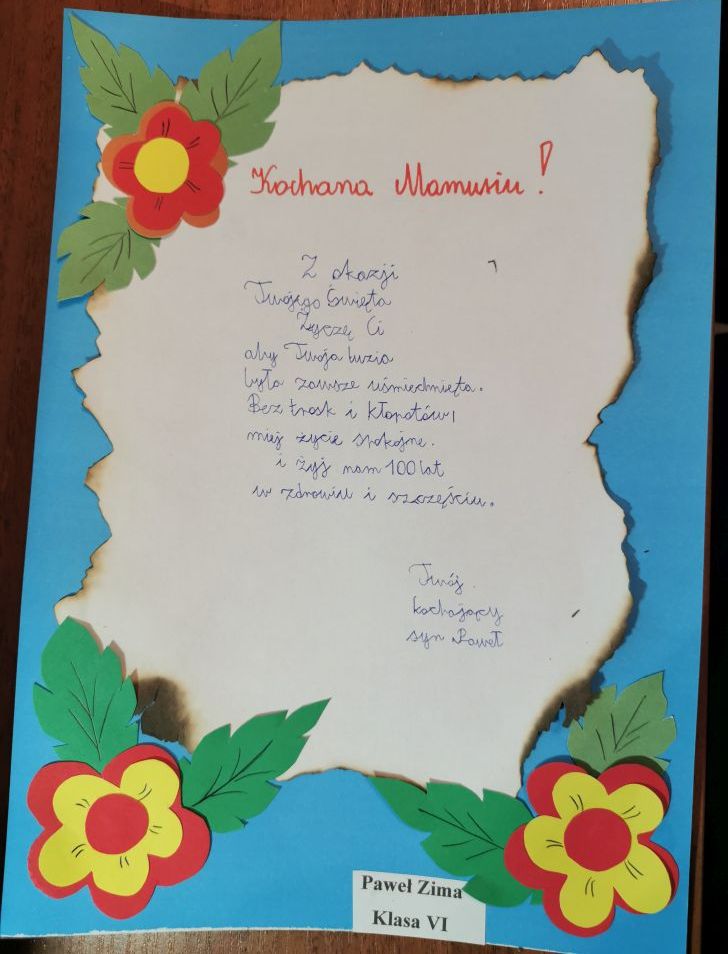 Kochana Mamusiu!
Z okazji
Twojego Święta
Życzę Ci
aby Twoja buzia
była zawsze uśmiechnięta.
Bez trosk i kłopotów,
miej życie spokojne.
i żyj nam 100 lat
w zdrowiu i szczęściu.
Twój
kochający
syn Paweł
Paweł Zima
Klasa VI